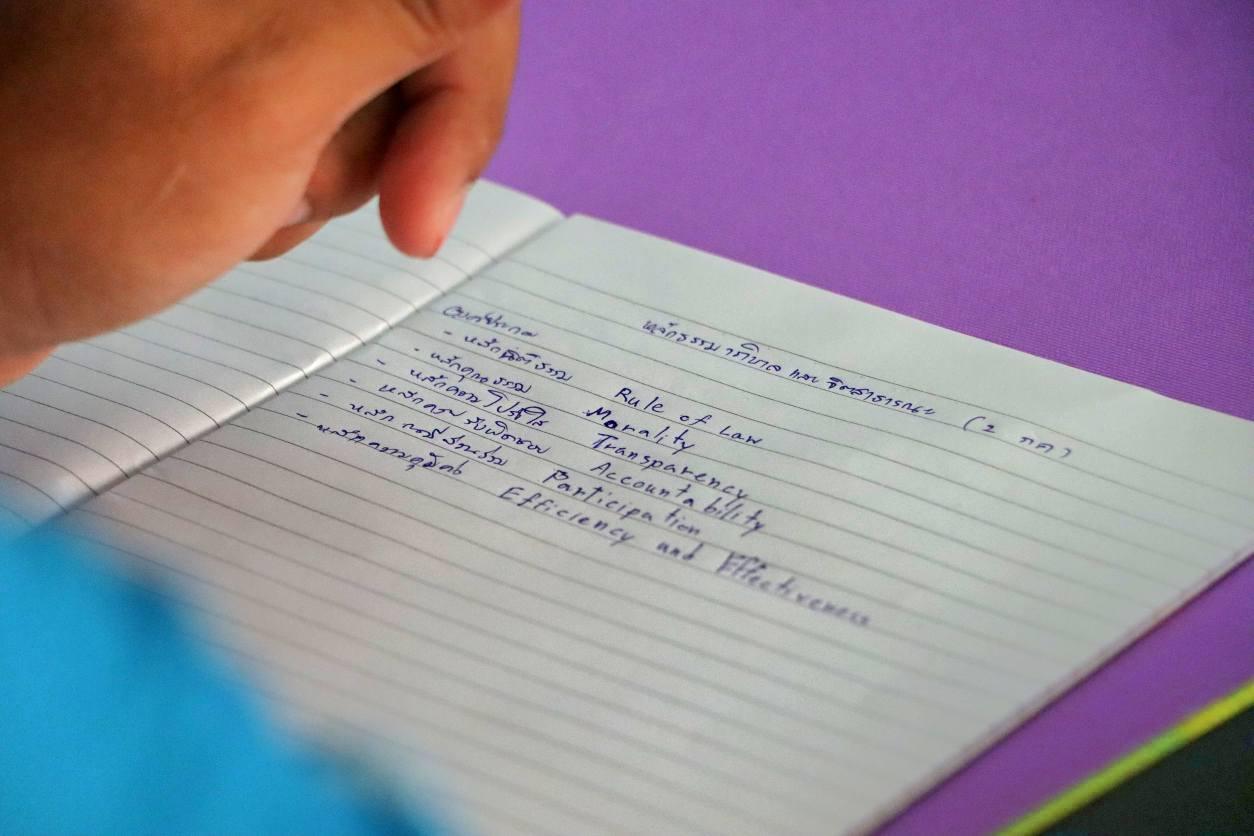 หลักธรรมาภิบาล และ จิตสาธารณะ (2 ภค)
องค์ประกอบ
- หลักนิติธรรม Rule of Law
- หลักคุณธรรม Morality
- หลักความโปร่งใส Transparency
- หลักความรับผิดชอบ Accountability
- หลักการมีส่วนร่วม Participation
- หลักความคุ้มค่า Efficiency and Effectiveness